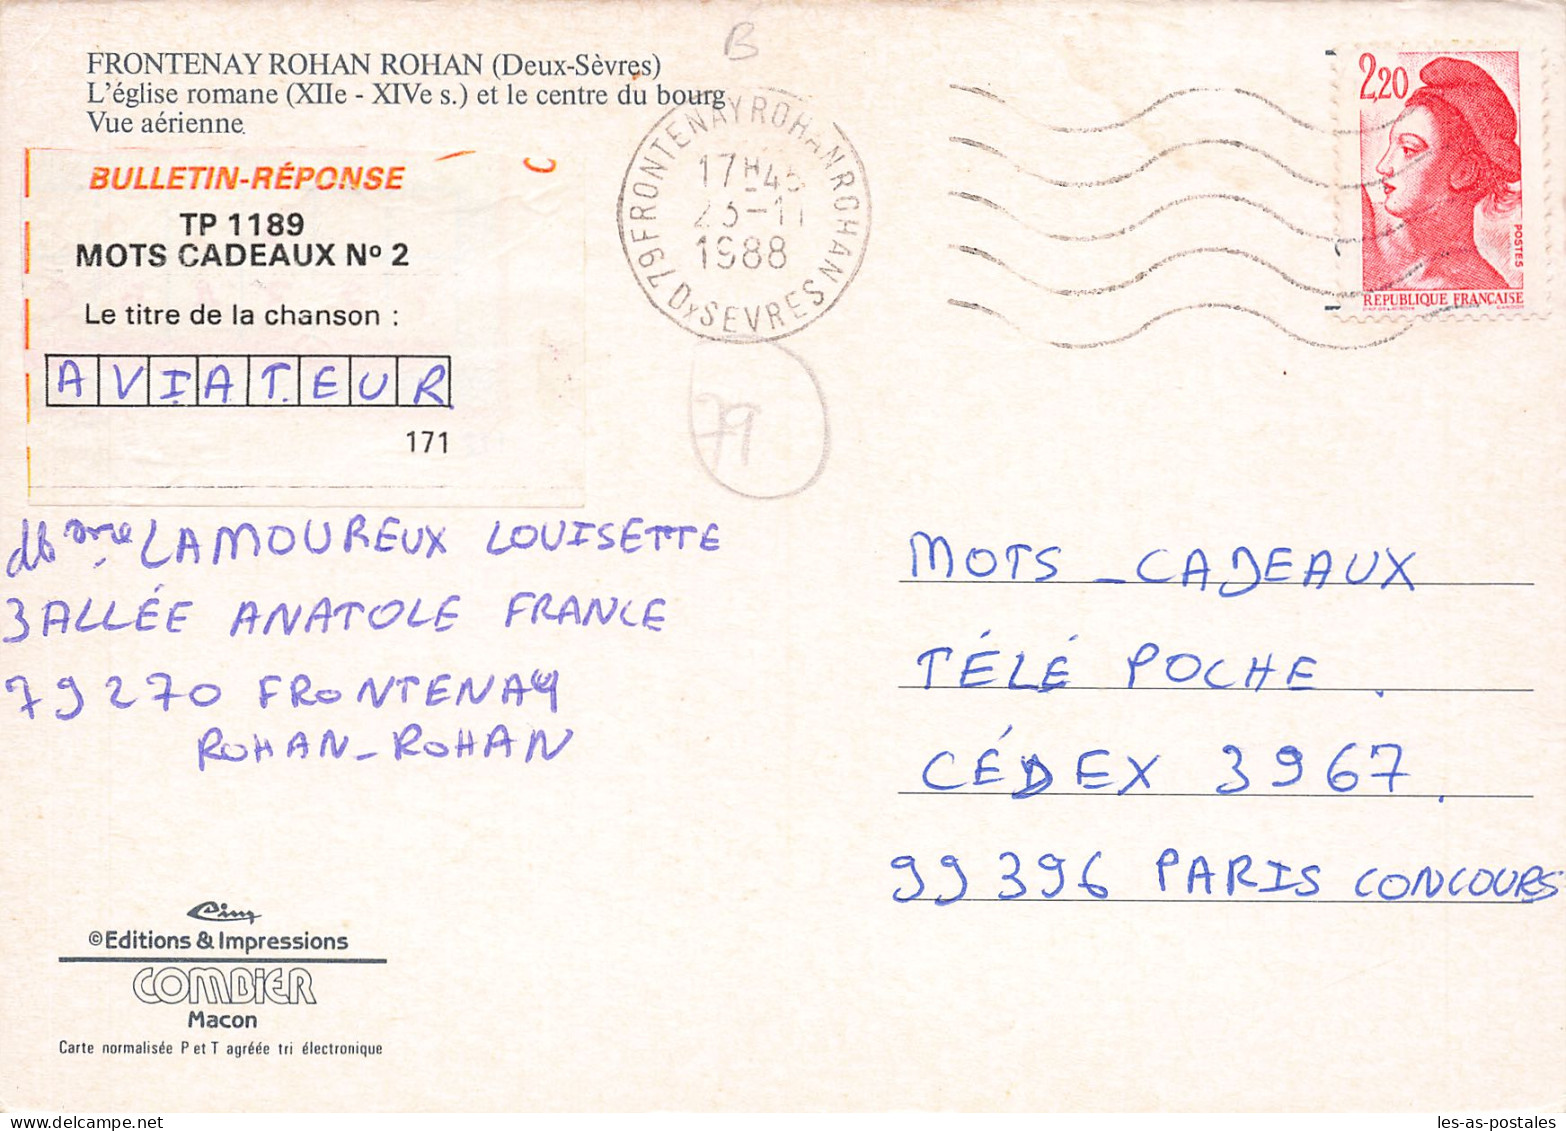 B
FRONTENAY ROHAN ROHAN (Deux-Sèvres)
L'église romane (XIIe - XIVe s.) et le centre du bourg
Vue aérienne
79 FRONTENAY ROHAN ROHAN DX SEVRES
17H45
23-11
1988
2,20
POSTES
REPUBLIQUE FRANÇAISE
BULLETIN-RÉPONSE
TP 1189
MOTS CADEAUX Nº 2
Le titre de la chanson :
AVIATEUR
171
79
LAMOUREUX LOUISETTE
3 ALLÉE ANATOLE FRANCE
79270 FRONTENAY
ROHAN-ROHAN
MOTS-CADEAUX
TÉLÉ POCHE.
CÉDEX 3967.
99396 PARIS CONCOURS
Cim
©Editions & Impressions
COMBIER
Macon
Carte normalisée P et T agréée tri électronique
les-as-postales